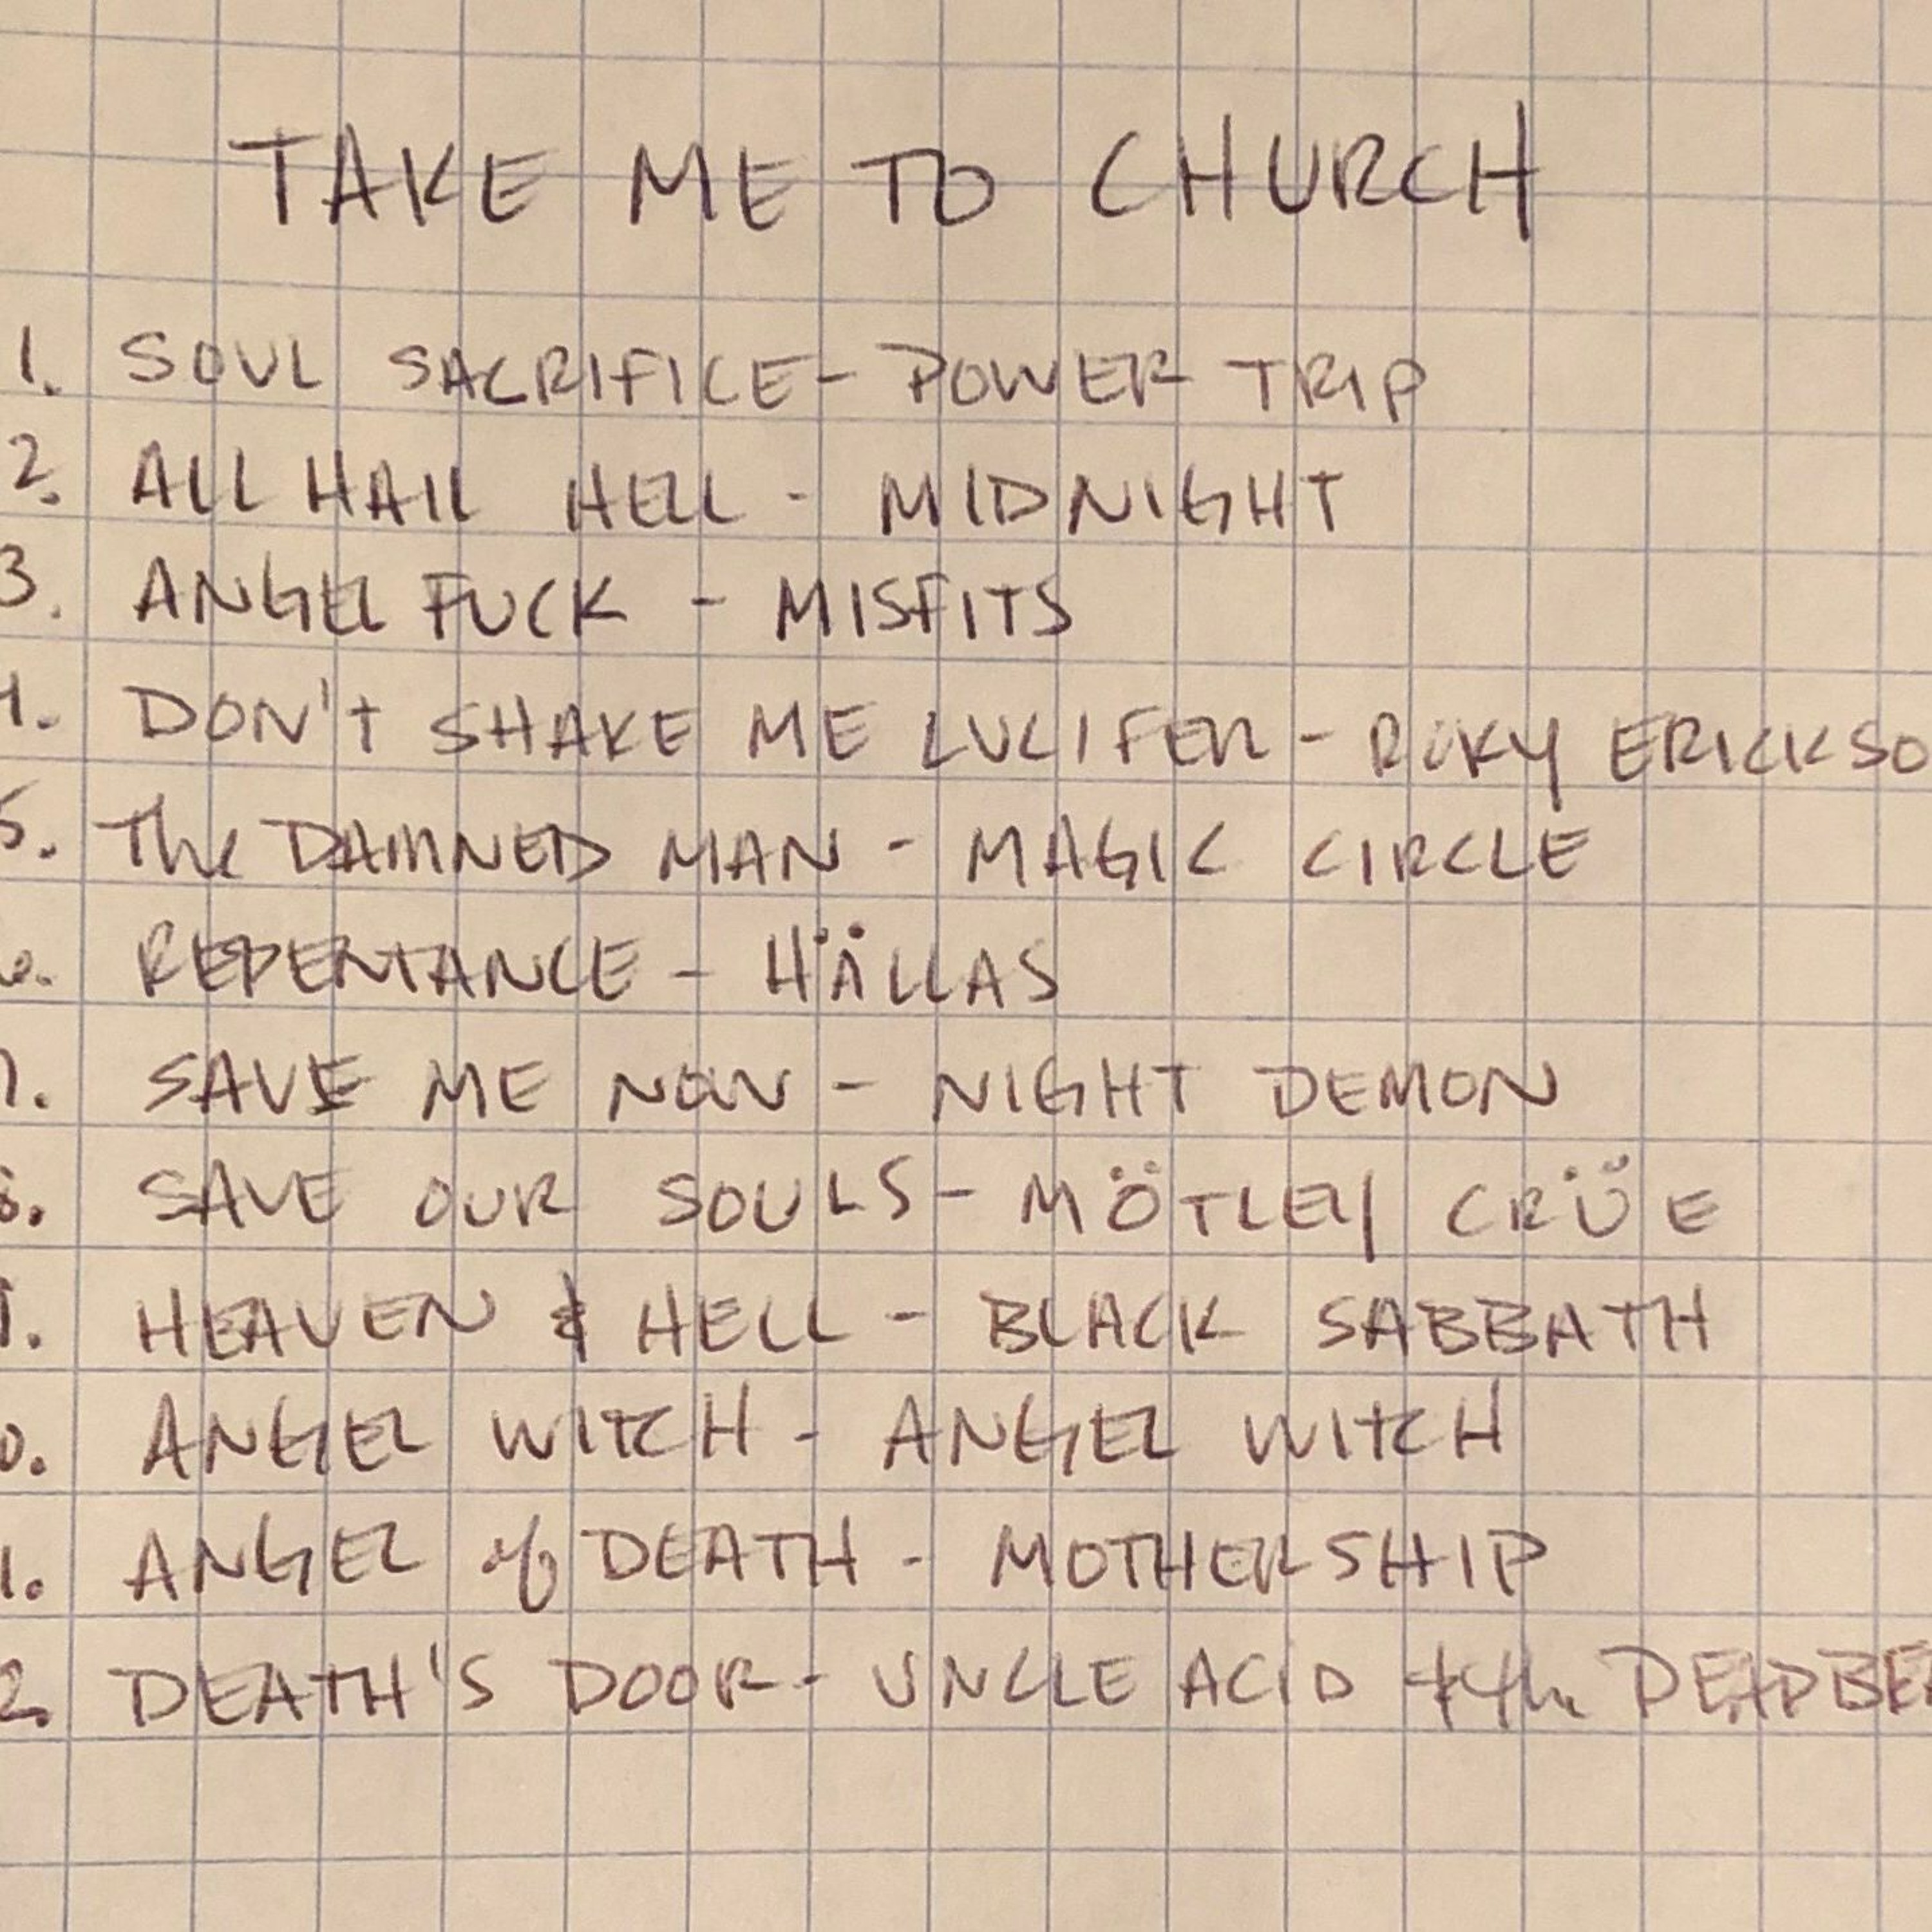 TAKE ME TO CHURCH
1. SOUL SACRIFICE - POWER TRIP
2. ALL HAIL HELL - MIDNIGHT
3. ANGEL FUCK - MISFITS
4. DON'T SHAKE ME LUCIFER - ROKY ERICKSO
5. The DAMNED MAN - MAGIC CIRCLE
6. REPENTANCE - HÄLLAS
7. SAVE ME NOW - NIGHT DEMON
8. SAVE OUR SOULS - MÖTLEY CRÜE
9. HEAVEN & HELL - BLACK SABBATH
0. ANGEL WITCH - ANGEL WITCH
1. ANGEL of DEATH - MOTHERSHIP
2. DEATH'S DOOR - UNCLE ACID & the DEADBEA